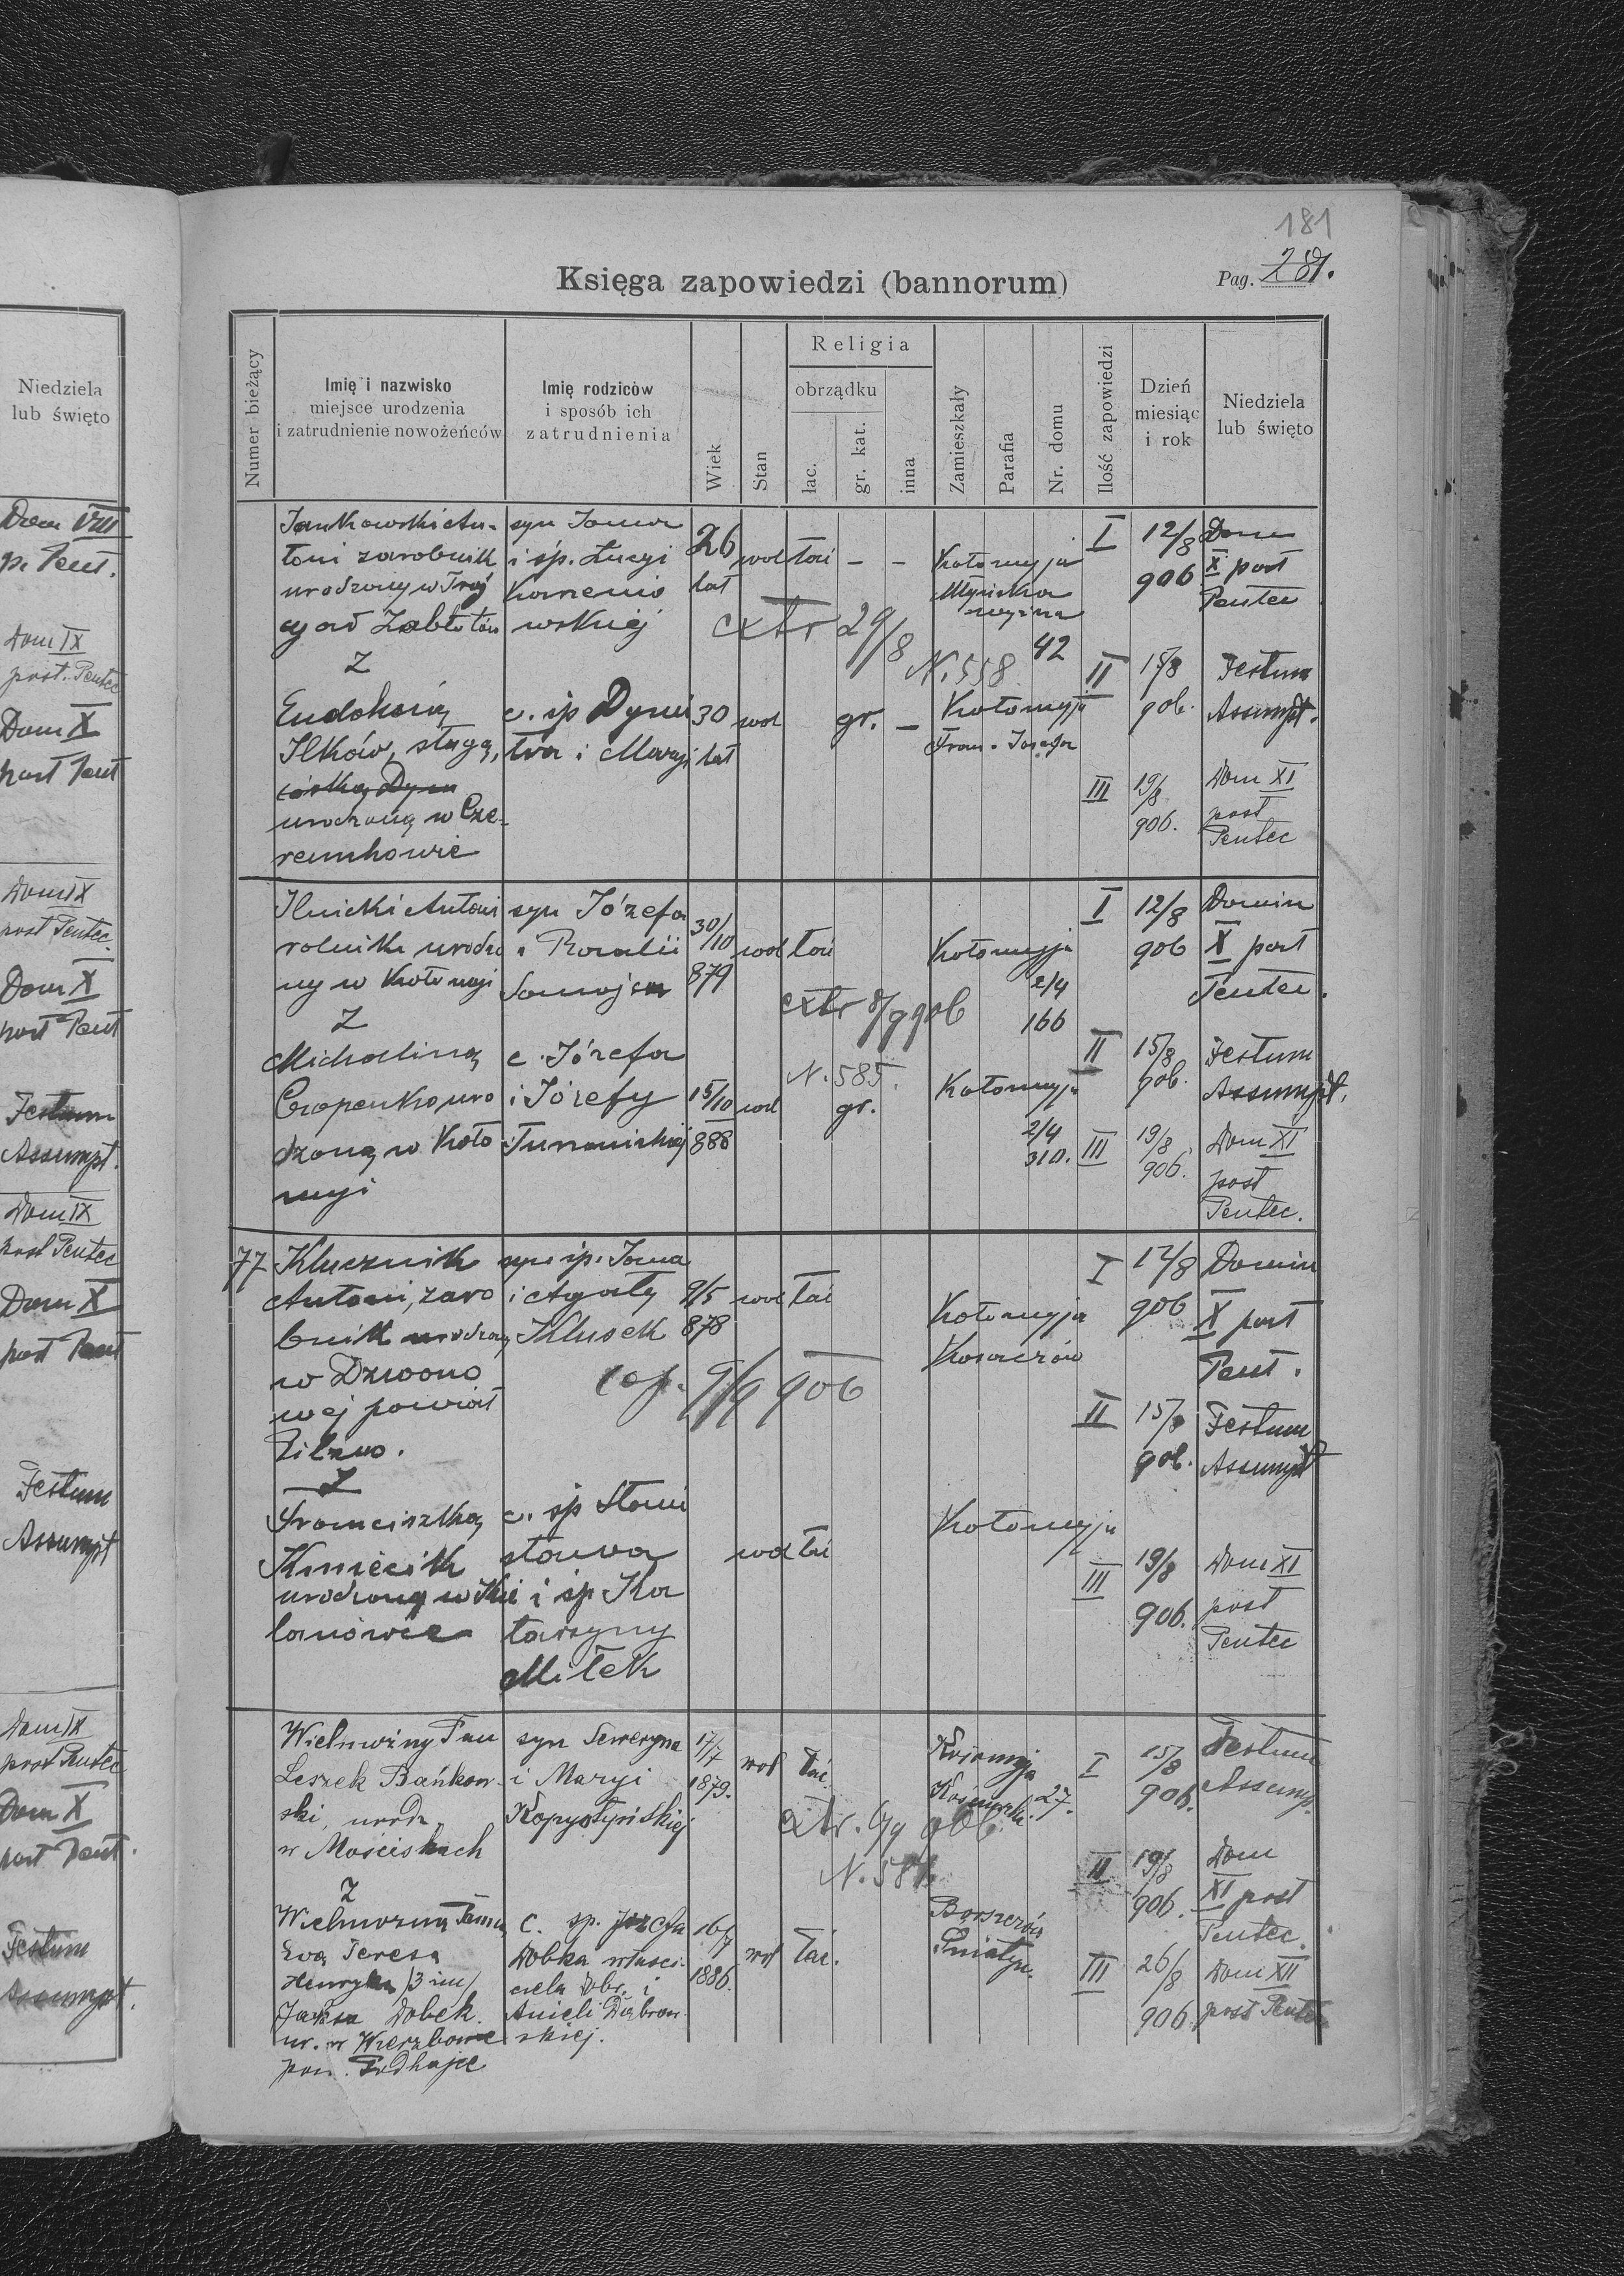 181
Księga zapowiedzi (bannorum)
Pag. 281.
Numer bieżący
Imię i nazwisko
miejsce urodzenia
i zatrudnienie nowożeńców
Imię rodziców
i sposób ich
zatrudnienia
Wiek
Stan
Religia
obrządku
łac.
gr. kat.
inna
Zamieszkały
Parafia
Nr. domu
Ilość zapowiedzi
Dzień
miesiąc
i rok
Niedziela
lub święto
Niedziela
lub święto
Dom VIII
p. Pent.
Dom IX
post. Pentec
Dom X
post Pent
Dom IX
post Pentec.
Dom X
post Pent
Festum
Assumpt.
Dom IX
post Pentec
Dom X
post Pent
Festum
Assumpt
Dom IX
post Pentec
Dom X
post Pent.
Festum
Assumpt.
Jankowski An-
toni zarobnik
urodzony w
ad Zabłotów
Z
Eudoksią
Ilków, sługą,
córką Dym
urodzoną w Cze-
remchowie
syn Jana
i śp. Łucyi
Kanenio
wskiej
c. śp Dymi
tra i Maryi
26
lat
wol
łaci
-
-
Kołomyja
Mnichowka
42
extr 29/8
N. 558
30
lat
wol
gr.
-
Kołomyja
Fran. Józefa
I
12/8
906
Dom
X post
Pentec
II
15/8
906.
Festum
Assumpt.
III
19/8
906.
Dom XI
post
Pentec
Ilnicki Antoni
rolnik urodzo
ny w Kołomyi
Z
Michaliną
Czopenko uro
dzoną w Koło
myi
syn Józefa
i Rozalii
c. Józefa
i Józefy
30/10
879
wol
łaci
Kołomyja
2/4
166
extr 8/9 906
N. 585.
15/10
888
wol
gr.
Kołomyja
2/4
310.
I
12/8
906
Domin
X post
Pentec.
II
15/8
906.
Festum
Assumpt.
III
19/8
906.
Dom XI
post
Pentec.
77
Klucznik
Antoni, zaro
bnik urodzony
w Dzwono
wej powiat
Pilzno.
Z
Franciszką
Kmiecik
urodzoną w Kie
lanówce
syn śp. Jana
i Agaty
Klusek
c. śp Stani
sława
i śp. Ka
tarzyny
Miłek
9/5
878
wol
łaci
Kołomyja
Kosaczów
cop. 9/9 906
wol
łaci
Kołomyja
I
12/8
906
Domin
X post
Pent.
II
15/8
906.
Festum
Assumpt
III
19/8
906.
Dom XI
post
Pentec
Wielmożny Pan
Leszek Bańkow
ski, urodz.
w Mościskach
Z
Wielmożną Panną
Ewą Teresą
Henryką /3 im/
Jaksa Dobek.
ur. w Wierzbowie
pow. Podhajce
syn Seweryna
i Maryi
Kopystyńskiej
c. śp. Józefa
Dobka właści-
ciela dóbr. i
Anieli Dąbrow-
skiej.
17/7
1879.
wol
łac.
Kołomyja
27.
extr. 6/9 906.
16/7
1886.
wol
łac.
Borszczów
Śniatyn.
I
15/8
906.
Festum
Assump.
II
19/8
906.
Dom
XI post
Pentec.
III
26/8
906
Dom XII
post Pentec